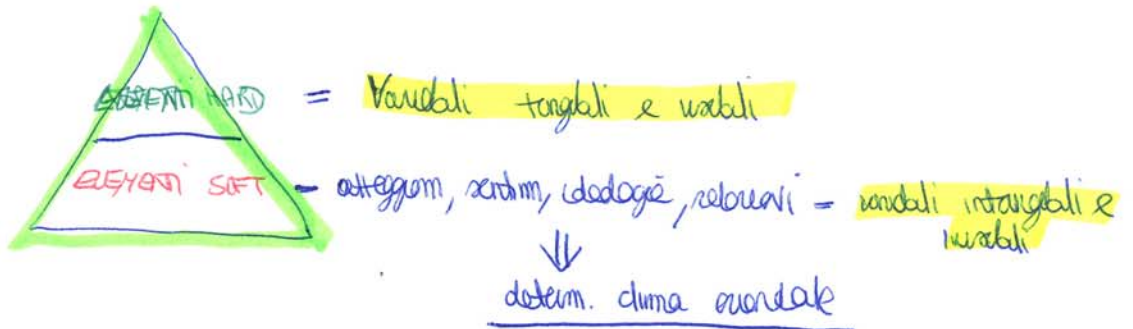 ELEMENTI HARD = Variabili tangibili e visibili
ELEMENTI SOFT - atteggiam, sentim, ideologie, relazioni = variabili intangibili e invisibili
⇓
determ. clima aziendale